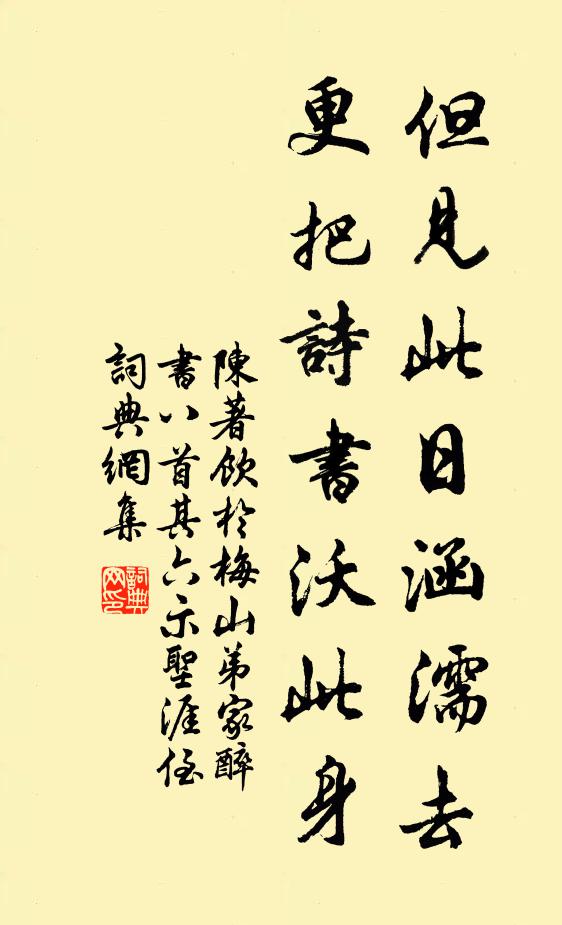 但見此日涵濡去
更把詩書沃此身
陳著飲於梅山弟家醉
書八首其六示聖涯侄
詞典網集
詞典網印